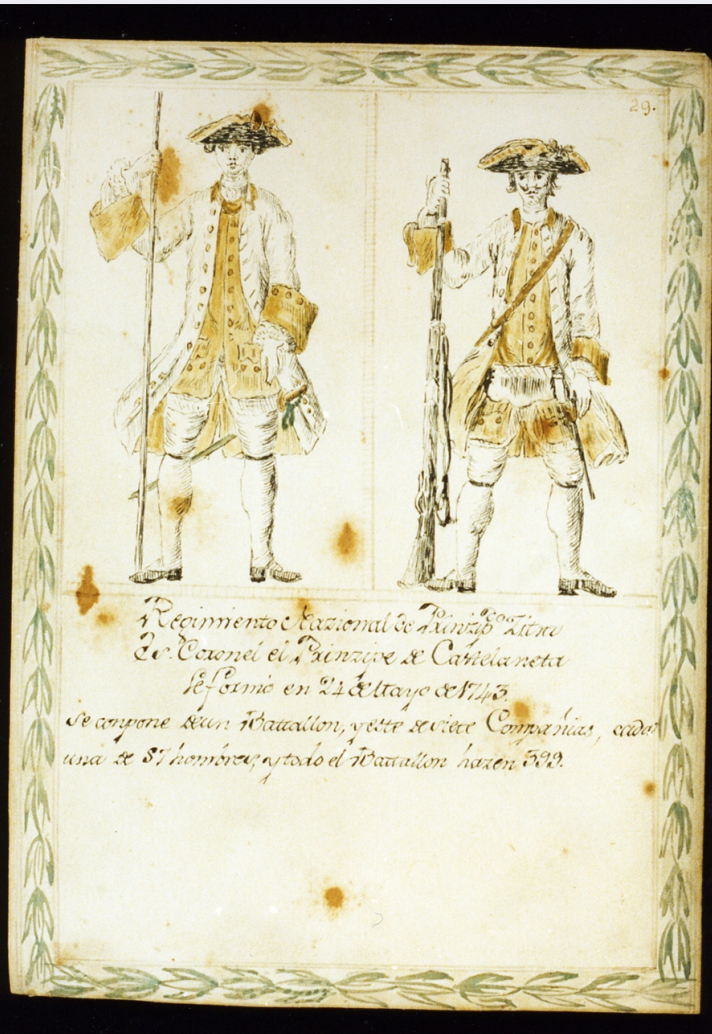 29.
Regimiento Nazional de Prinzip.do Zitra
Su Coronel el Prinzipe de Castelaneta
Se formó en 24 de Mayo de 1743
Se conpone de un Battallon, y este de siete Compañias, cada
una de 57 hombres, y todo el Battallon hazen 399.